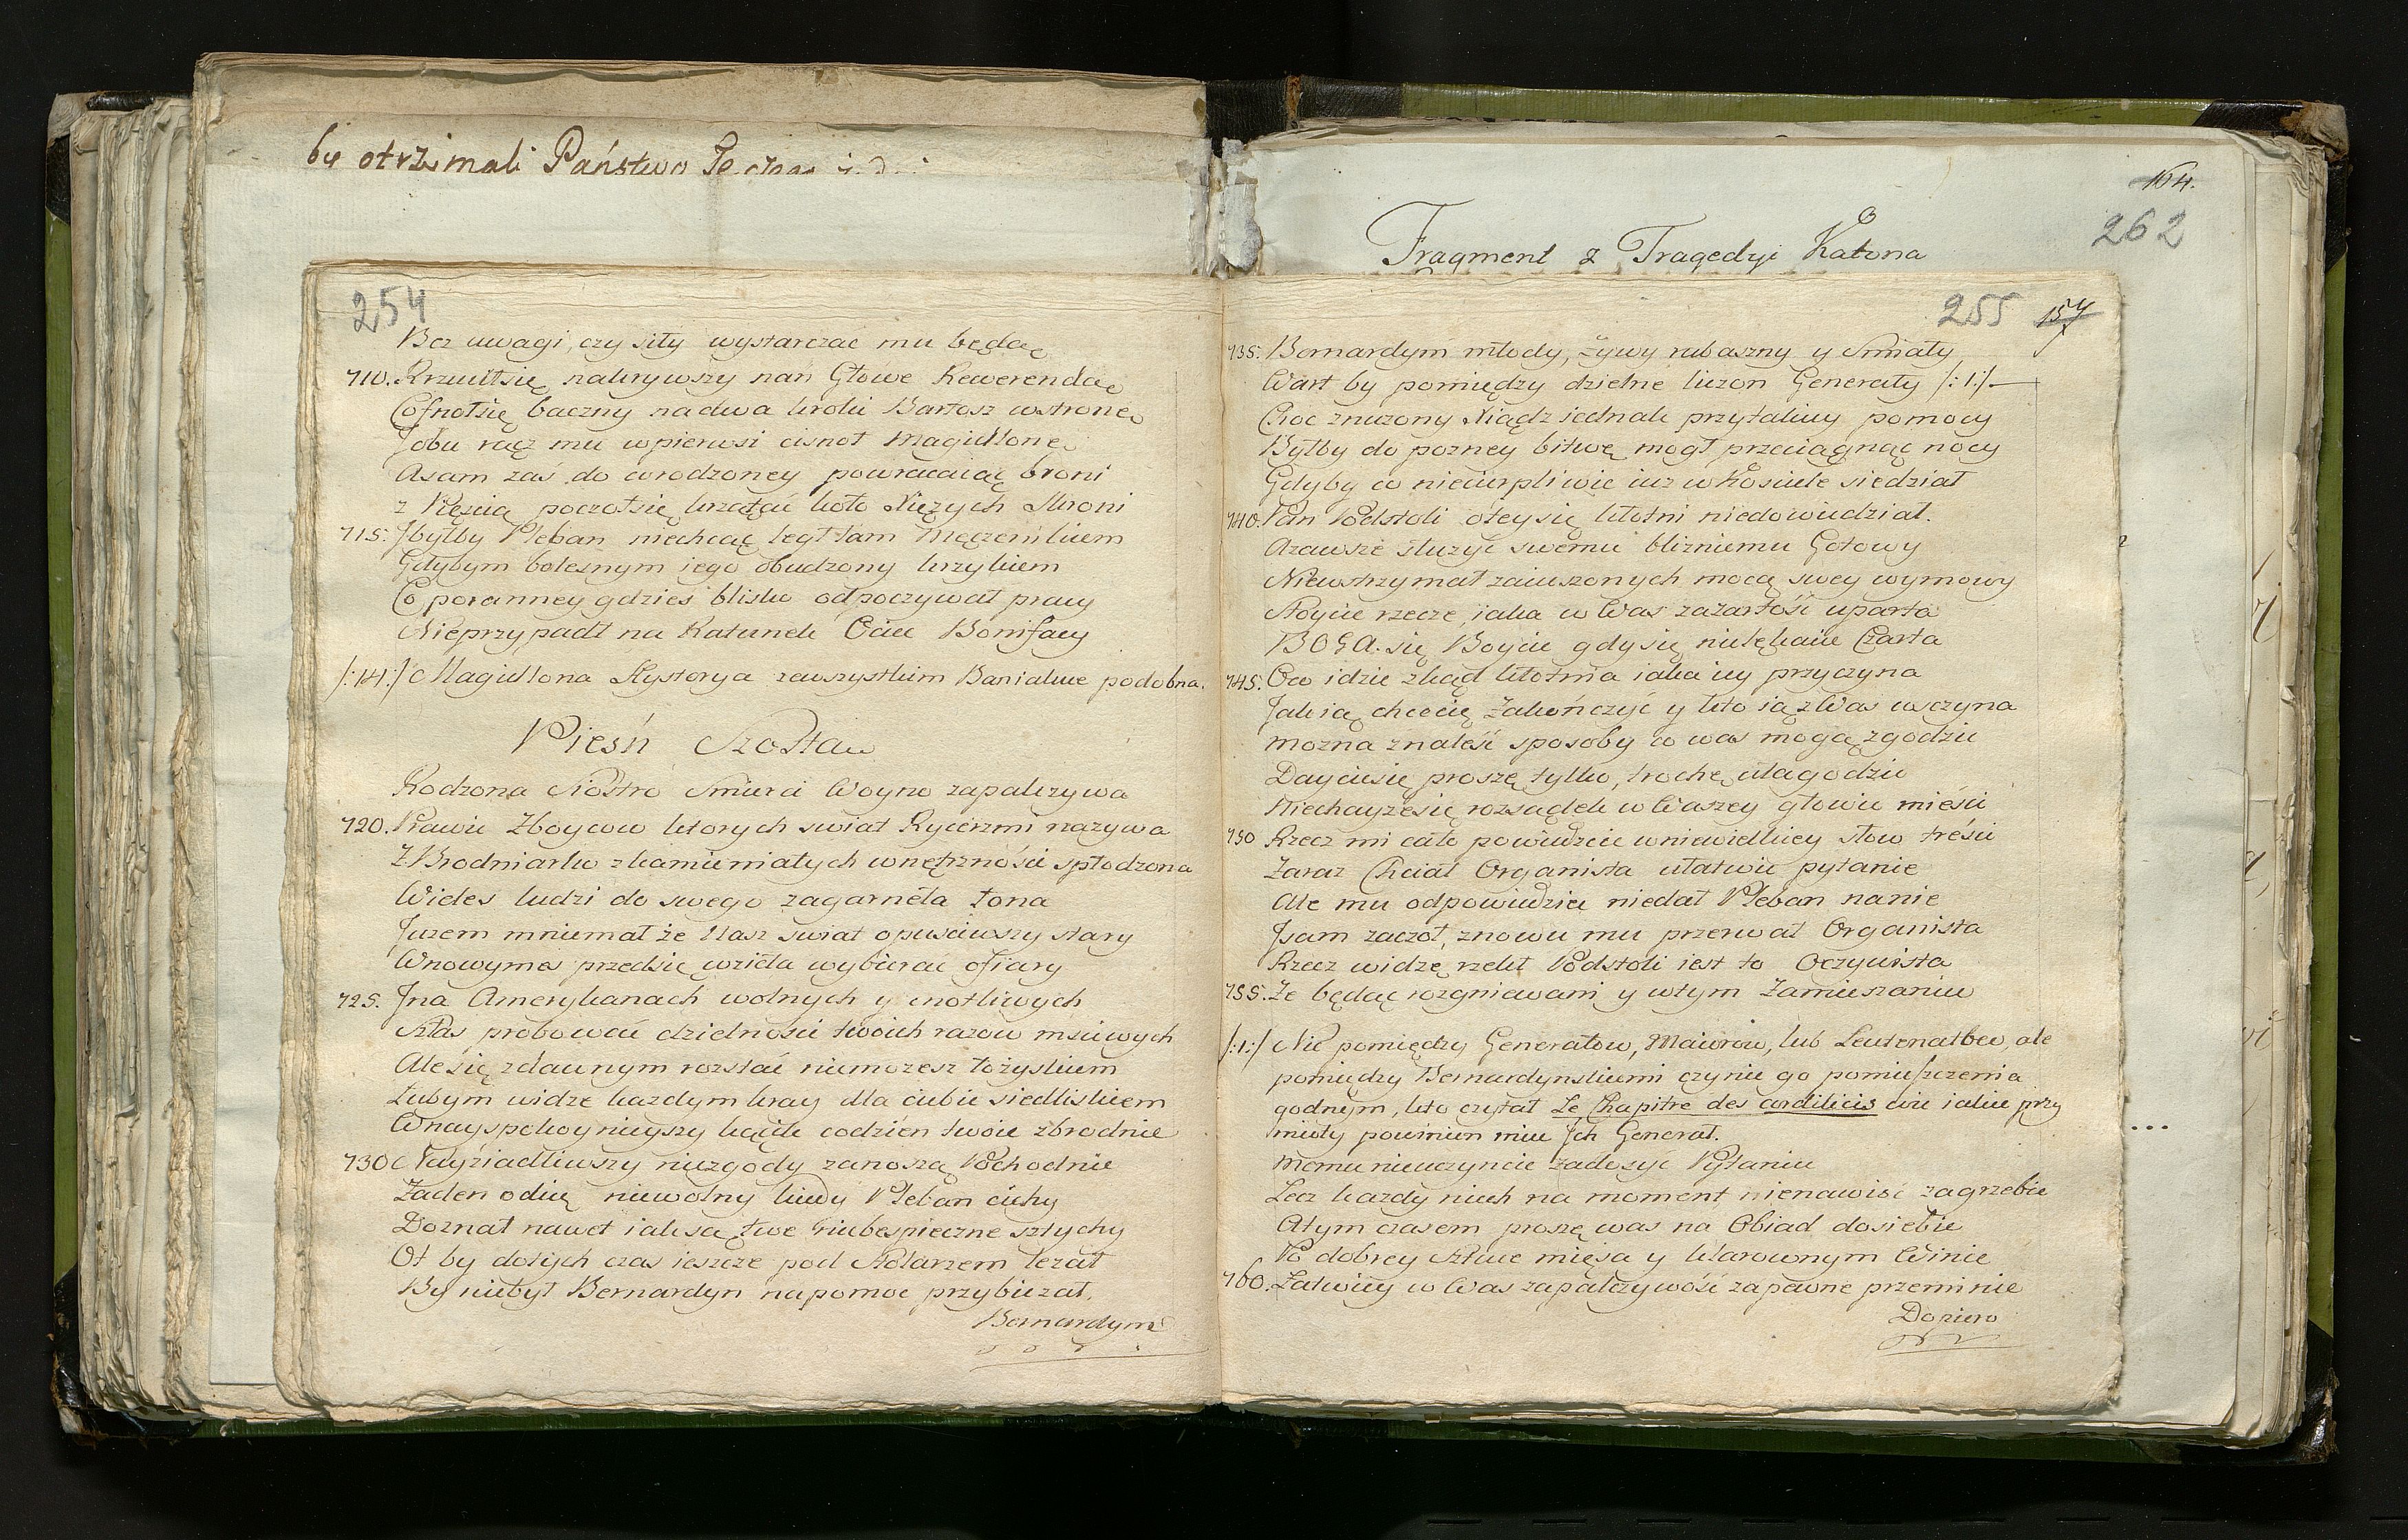 by otrzimali Państwo
254
Bez uwagi, czy siły wystarczać mu będąę
710. Rzuciłsię nakrywszy nań Głowe Rewerendąę
Cofnołsię baczny nadwa kroki Bartosz wstronę
Jobu rąg mu wpierwsi cisnoł Magiellonę
Asam zaś do wrodzoney powracaiąc broni
z Pięścią poczołsię krzątać koło Xiężych Skroni
715. Jbyłby Pleban niechcąc legł tam Męczennikiem
Gdybym bolesnym iego obudzony krzykiem
Co poranney gdzies blisko odpoczywał pracy
Nieprzypadł na Ratunek Ociec Bonifacy
/:14:/ Magiellona Hystorya zewszystkim Banialuce podobna.
Pieśń Szosta
Rodzona Siostro Smierci Woyno zapalczywa
720. Prawie Zboycow ktorych swiat Rycerzmi nazywa
Zbrodniarko zkamieniałych wnętrzności spłodzona
Wieleś ludzi do swego zagarneła łona
Jużem mniemał że Nasz swiat opusciwszy stary
Wnowymeś przedsię wzieła wybierać ofiary
725. Jna Amerykanach wolnych y cnotliwych
Szłaś probować dzielności twoich razow msciwych
Alesię zdawnym rozstać niemożesz łożyskiem
Lubym widzę każdym kray dla ciebie siedliskiem
Wnayspokoynieyszy kącik codzien twoie zbrodnie
730 Nayziadliwszy niezgody zanoszą Pochodnie
Żaden odnię niewolny kiedy Pleban cichy
Doznał nawet iak są twe niebespieczne sztychy
Ot by dotych czas ieszcze pod Ołtarzem leżał
By niebył Bernardyn napomoc przybieżał.
Bernardyni
Fragment z Tragedyi Katona
164.
262
255
157
735. Bernardyni młody, żywy rubaszny y Smiały
Wart by pomiędzy dzielne liczon Generały /:1:/
Choc znużony Xiądz iednak przytakiey pomocy
Byłby do pozney bitwę mogł przeciągnąc nocy
Gdyby co niecierpliwie iuż w Kościele siedział
740. Pan Podstoli oteysię kłotni niedowiedział.
Azawsze służyć swemu blizniemu Gotowy
Niewstrzymał zaiuszonych mocą swey wymowy
Stoycie rzecze, iaka w Was zażartość uparta
BOGA. się Boycie gdysię nielękacie Czarta
745. Oco idzie zkąd kłotnia iaka iey przyczyna
Jak ią chcecie Zakończyć y kto ią z Was wszczyna
Można znaleść sposoby co was mogą zgodzić
Dayciesię proszę tylko, trochę ułagodzić
Niechayżesię rozsądek w Waszey głowie mieści
750 Rzecz mi całe powiedzcie wniewielkiey słow treści
Zaraz Chciał Organista ułatwić pytanie
Ale mu odpowiedzieć niedał Pleban nanie
Jsam zaczoł, znowu mu przerwał Organista
Rzecz widzę rzekł Podstoli iest to Oczywista
755. Ze będąc rozgniewani y wtym Zamieszaniu
/:1:/ Nie pomiędzy Generałow, Maiorow, lub Leutenatbow, ale
pomiędzy Bernardynskiemi czynie go pomieszczenia
godnym, kto czytał Le Chapitre des cordiliers wie iakie przy
mioty powinien miec Jch Generał.
Memu nieuczyncie zadosyć Pytaniu
Lecz każdy niech na moment nienawiść zagrzebie
Atym czasem proszę was na Obiad dosiebie
Po dobrey sztuce mięsa y klarownym Winie
760. Łatwiey w Was zapalczywość zapewne przeminie
Dopiero